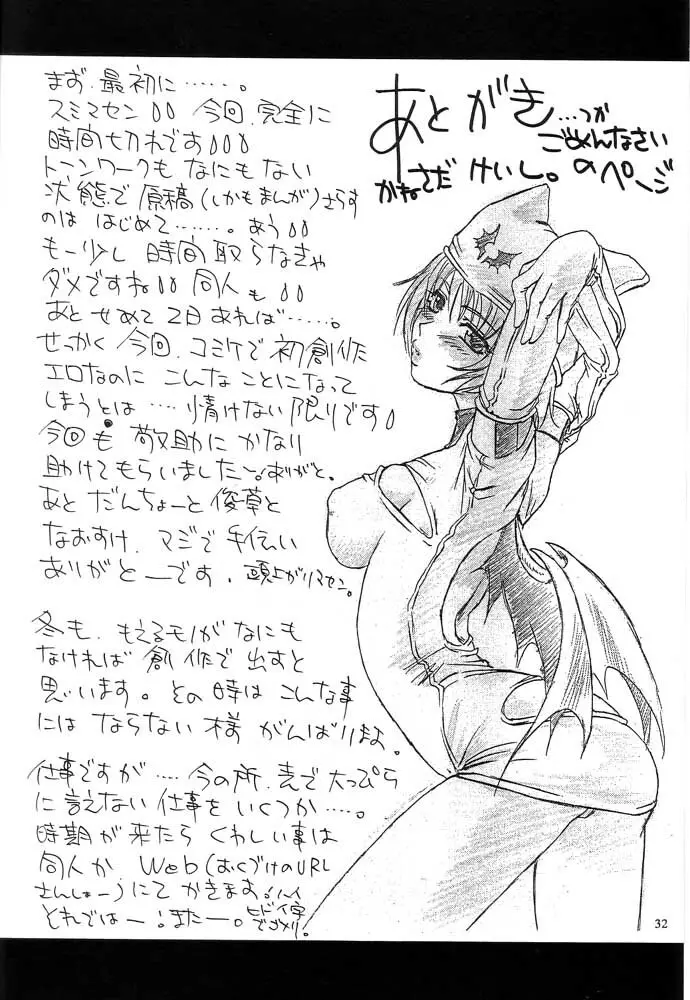 あとがき…つか
ごめんなさい
のページ
かねさだ けいし。
まず、最初に……。
スミマセン 今回、完全に
時間切れです
トーンワークも なにもない
状態で 原稿(しかもまんが)さらす
のは はじめて……。あう
もー少し 時間 取らなきゃ
ダメですね 同人も
あと せめて 2日 あれば……。
せっかく 今回、コミケで 初創作
エロなのに こんな ことになって
しまうとは… 情けない 限りです
今回も 敬助に かなり
助けて もらいました〜。ありがと。
あと だんちょーと 俊草と
なおすけ、マジで 手伝い
ありがとーです。頭上がりマセン。
冬も、もえるモノが なにも
なければ 創作で 出すと
思います。その時は こんな事
には ならない 様 がんばりまよ。
仕事ですが…‥ 今の所、表で 大っぴら
に言えない 仕事を いくつか…‥。
時期が 来たら くわしい事は
同人か、Web(おくづけのURL
さんしょー)にて かきます!
それではー!またー。ヒドイ字
でゴメリ!
32